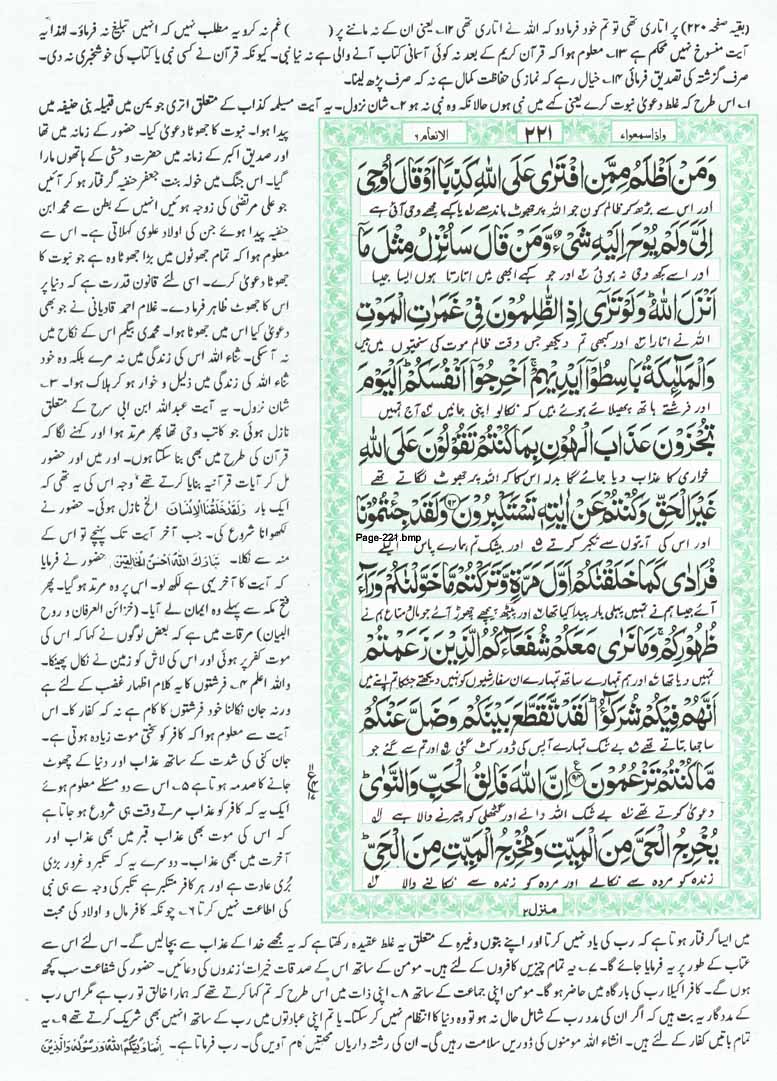 (بقیہ صفحہ ۲۲۰) پر اتاری تھی تو تم خود فرمادو کہ اللہ نے اتاری تھی ۱۲؎ یعنی ان کے نہ ماننے پر ( ) غم نہ کرو یہ مطلب نہیں کہ انہیں تبلیغ نہ فرماؤ۔ لہٰذا یہ
آیت منسوخ نہیں محکم ہے ۱۳؎ معلوم ہوا کہ قرآن کریم کے بعد نہ کوئی آسمانی کتاب آنے والی ہے نہ نیا نبی۔ کیونکہ قرآن نے کسی نبی یا کتاب کی خوشخبری نہ دی۔
صرف گزشتہ کی تصدیق فرمائی ۱۴؎ خیال رہے کہ نماز کی حفاظت کمال ہے نہ کہ صرف پڑھ لینا۔
۱؎ اس طرح کہ غلط دعویٰ نبوت کرے یعنی کہے میں نبی ہوں حالانکہ وہ نبی نہ ہو ۲؎ شان نزول۔ یہ آیت مسیلمہ کذاب کے متعلق اتری جو یمن میں قبیلہ بنی حنیفہ میں
پیدا ہوا۔ نبوت کا جھوٹا دعویٰ کیا۔ حضور کے زمانہ میں تھا
اور صدیق اکبر کے زمانہ میں حضرت وحشی کے ہاتھوں مارا
گیا۔ اس جنگ میں خولہ بنت جعفر حنفیہ گرفتار ہو کر آئیں
جو علی مرتضیٰ کی زوجہ ہوئیں انہیں کے بطن سے محمد ابن
حنفیہ پیدا ہوئے جن کی اولاد علوی کہلاتی ہے۔ اس سے
معلوم ہوا کہ تمام جھوٹوں میں بڑا جھوٹا وہ ہے جو نبوت کا
جھوٹا دعویٰ کرے۔ اسی لئے قانون قدرت ہے کہ دنیا پر
اس کا جھوٹ ظاہر فرما دے۔ غلام احمد قادیانی نے جو بھی
دعویٰ کیا اس میں جھوٹا ہوا۔ محمدی بیگم اس کے نکاح میں
نہ آ سکی۔ ثناء اللہ اس کی زندگی میں نہ مرے بلکہ وہ خود
ثناء اللہ کی زندگی میں ذلیل و خوار ہو کر ہلاک ہوا۔ ۳؎
شان نزول۔ یہ آیت عبداللہ ابن ابی سرح کے متعلق
نازل ہوئی جو کاتب وحی تھا پھر مرتد ہوا اور کہنے لگا کہ
قرآن کی طرح میں بھی بنا سکتا ہوں۔ اور میں اور حضور
مل کر آیات قرآنیہ بنایا کرتے تھے' وجہ اس کی یہ تھی کہ
ایک بار وَلَقَدْ خَلَقْنَا الْاِنْسَانَ الخ نازل ہوئی۔ حضور نے
لکھوانا شروع کی۔ جب آخر آیت تک پہنچے تو اس کے
منہ سے نکلا۔ تَبَارَكَ اللّٰهُ اَحْسَنُ الْخَالِقِيْنَ۔ حضور نے فرمایا
کہ آیت کا آخر یہی ہے لکھ لو۔ اس پر وہ مرتد ہو گیا۔ پھر
فتح مکہ سے پہلے وہ ایمان لے آیا۔ (خزائن العرفان و روح
البیان) مرقات میں ہے کہ بعض لوگوں نے کہا کہ اس کی
موت کفر پر ہوئی اور اس کی لاش کو زمین نے نکال پھینکا۔
واللہ اعلم ۴؎ فرشتوں کا یہ کلام اظہار غضب کے لئے ہے
ورنہ جان نکالنا خود فرشتوں کا کام ہے نہ کہ کفار کا۔ اس
آیت سے معلوم ہوا کہ کافر کو سختی موت زیادہ ہوتی ہے۔
جان کنی کی شدت کے ساتھ عذاب اور دنیا کے چھوٹ
جانے کا صدمہ ہوتا ہے ۵؎ اس سے دو مسئلے معلوم ہوئے
ایک یہ کہ کافر کو عذاب مرتے وقت ہی شروع ہو جاتا ہے
کہ اس کی موت بھی عذاب قبر میں بھی عذاب اور
آخرت میں بھی عذاب۔ دوسرے یہ کہ تکبر و غرور بڑی
بُری عادت ہے اور ہر کافر متکبر ہے تکبر کی وجہ سے ہی نبی
کی اطاعت نہیں کرتا ۶؎ چونکہ کافر مال و اولاد کی محبت
واذا سمعوا ۷
۲۲۱
الانعام ۶
وَمَنْ اَظْلَمُ مِمَّنِ افْتَرٰى عَلَى اللّٰهِ كَذِبًا اَوْ قَالَ اُوْحِيَ
اور اس سے بڑھ کر ظالم کون جو اللہ پر جھوٹ باندھے یا کہے مجھے وحی آئی ہے
اِلَيَّ وَلَمْ يُوْحَ اِلَيْهِ شَيْءٌ وَّمَنْ قَالَ سَاُنْزِلُ مِثْلَ مَآ
اور اسے کچھ وحی نہ ہوئی اور جو کہے ابھی میں اتارتا ہوں ایسا جیسا
اَنْزَلَ اللّٰهُ ؕ وَلَوْ تَرٰٓى اِذِ الظّٰلِمُوْنَ فِيْ غَمَرٰتِ الْمَوْتِ
اللہ نے اتارا اور کبھی تم دیکھو جس وقت ظالم موت کی سختیوں میں ہیں
وَالْمَلٰٓئِكَةُ بَاسِطُوْٓا اَيْدِيْهِمْ ۚ اَخْرِجُوْٓا اَنْفُسَكُمْ ؕ اَلْيَوْمَ
اور فرشتے ہاتھ پھیلائے ہوئے ہیں کہ نکالو اپنی جانیں آج تمہیں
تُجْزَوْنَ عَذَابَ الْهُوْنِ بِمَا كُنْتُمْ تَقُوْلُوْنَ عَلَى اللّٰهِ
خواری کا عذاب دیا جائے گا بدلہ اس کا کہ اللہ پر جھوٹ لگاتے تھے
غَيْرَ الْحَقِّ وَكُنْتُمْ عَنْ اٰيٰتِهٖ تَسْتَكْبِرُوْنَ ﴿۹۳﴾ وَلَقَدْ جِئْتُمُوْنَا
Page-221.bmp
اور اس کی آیتوں سے تکبر کرتے اور بیشک تم ہمارے پاس اکیلے
فُرَادٰى كَمَا خَلَقْنٰكُمْ اَوَّلَ مَرَّةٍ وَّتَرَكْتُمْ مَّا خَوَّلْنٰكُمْ وَرَآءَ
آئے جیسا ہم نے تمہیں پہلی بار پیدا کیا تھا اور پیٹھ پیچھے چھوڑ آئے جو مال متاع ہم نے
ظُهُوْرِكُمْ ۚ وَمَا نَرٰى مَعَكُمْ شُفَعَآءَكُمُ الَّذِيْنَ زَعَمْتُمْ
تمہیں دیا تھا اور ہم تمہارے ساتھ تمہارے ان سفارشیوں کو نہیں دیکھتے جنکا تم اپنے میں
اَنَّهُمْ فِيْكُمْ شُرَكٰٓؤُا ؕ لَقَدْ تَّقَطَّعَ بَيْنَكُمْ وَضَلَّ عَنْكُمْ
ساجھا بتاتے تھے بے شک تمہارے آپس کی ڈور کٹ گئی اور تم سے گئے جو
مَّا كُنْتُمْ تَزْعُمُوْنَ ﴿۹۴﴾ اِنَّ اللّٰهَ فَالِقُ الْحَبِّ وَالنَّوٰى ؕ
دعویٰ کرتے تھے بے شک اللہ دانے اور گٹھلی کو چیرنے والا ہے
يُخْرِجُ الْحَيَّ مِنَ الْمَيِّتِ وَمُخْرِجُ الْمَيِّتِ مِنَ الْحَيِّ ؕ
زندہ کو مردہ سے نکالے اور مردہ کو زندہ سے نکالنے والا
منزل ۲
میں ایسا گرفتار ہوتا ہے کہ رب کی یاد نہیں کرتا اور اپنے بتوں وغیرہ کے متعلق یہ غلط عقیدہ رکھتا ہے کہ یہ مجھے خدا کے عذاب سے بچالیں گے۔ اس لئے اس سے
عتاب کے طور پر یہ فرمایا جائے گا۔ ۷؎ یہ تمام چیزیں کافروں کے لئے ہیں۔ مومن کے ساتھ اس کے صدقات خیرات' زندوں کی دعائیں۔ حضور کی شفاعت سب کچھ
ہوں گے۔ کافر اکیلا رب کی بار گاہ میں حاضر ہو گا۔ مومن اپنی جماعت کے ساتھ ۸؎ اپنی ذات میں اس طرح کہ تم کہا کرتے تھے کہ ہمارا خالق تو رب ہے مگر اس رب
کے مددگار یہ بت ہیں کہ اگر ان کی مدد رب کے شامل حال نہ ہو تو وہ دنیا کا انتظام نہیں کر سکتا۔ یا تم اپنی عبادتوں میں رب کے ساتھ انہیں بھی شریک کرتے تھے ۹؎ یہ
تمام باتیں کفار کے لئے ہیں۔ انشاء اللہ مومنوں کی ڈوریں سلامت رہیں گی۔ ان کی رشتہ داریاں محبتیں کام آویں گی۔ رب فرماتا ہے۔ اِنَّمَا وَلِيُّكُمُ اللّٰهُ وَرَسُوْلُهٗ وَالَّذِيْنَ